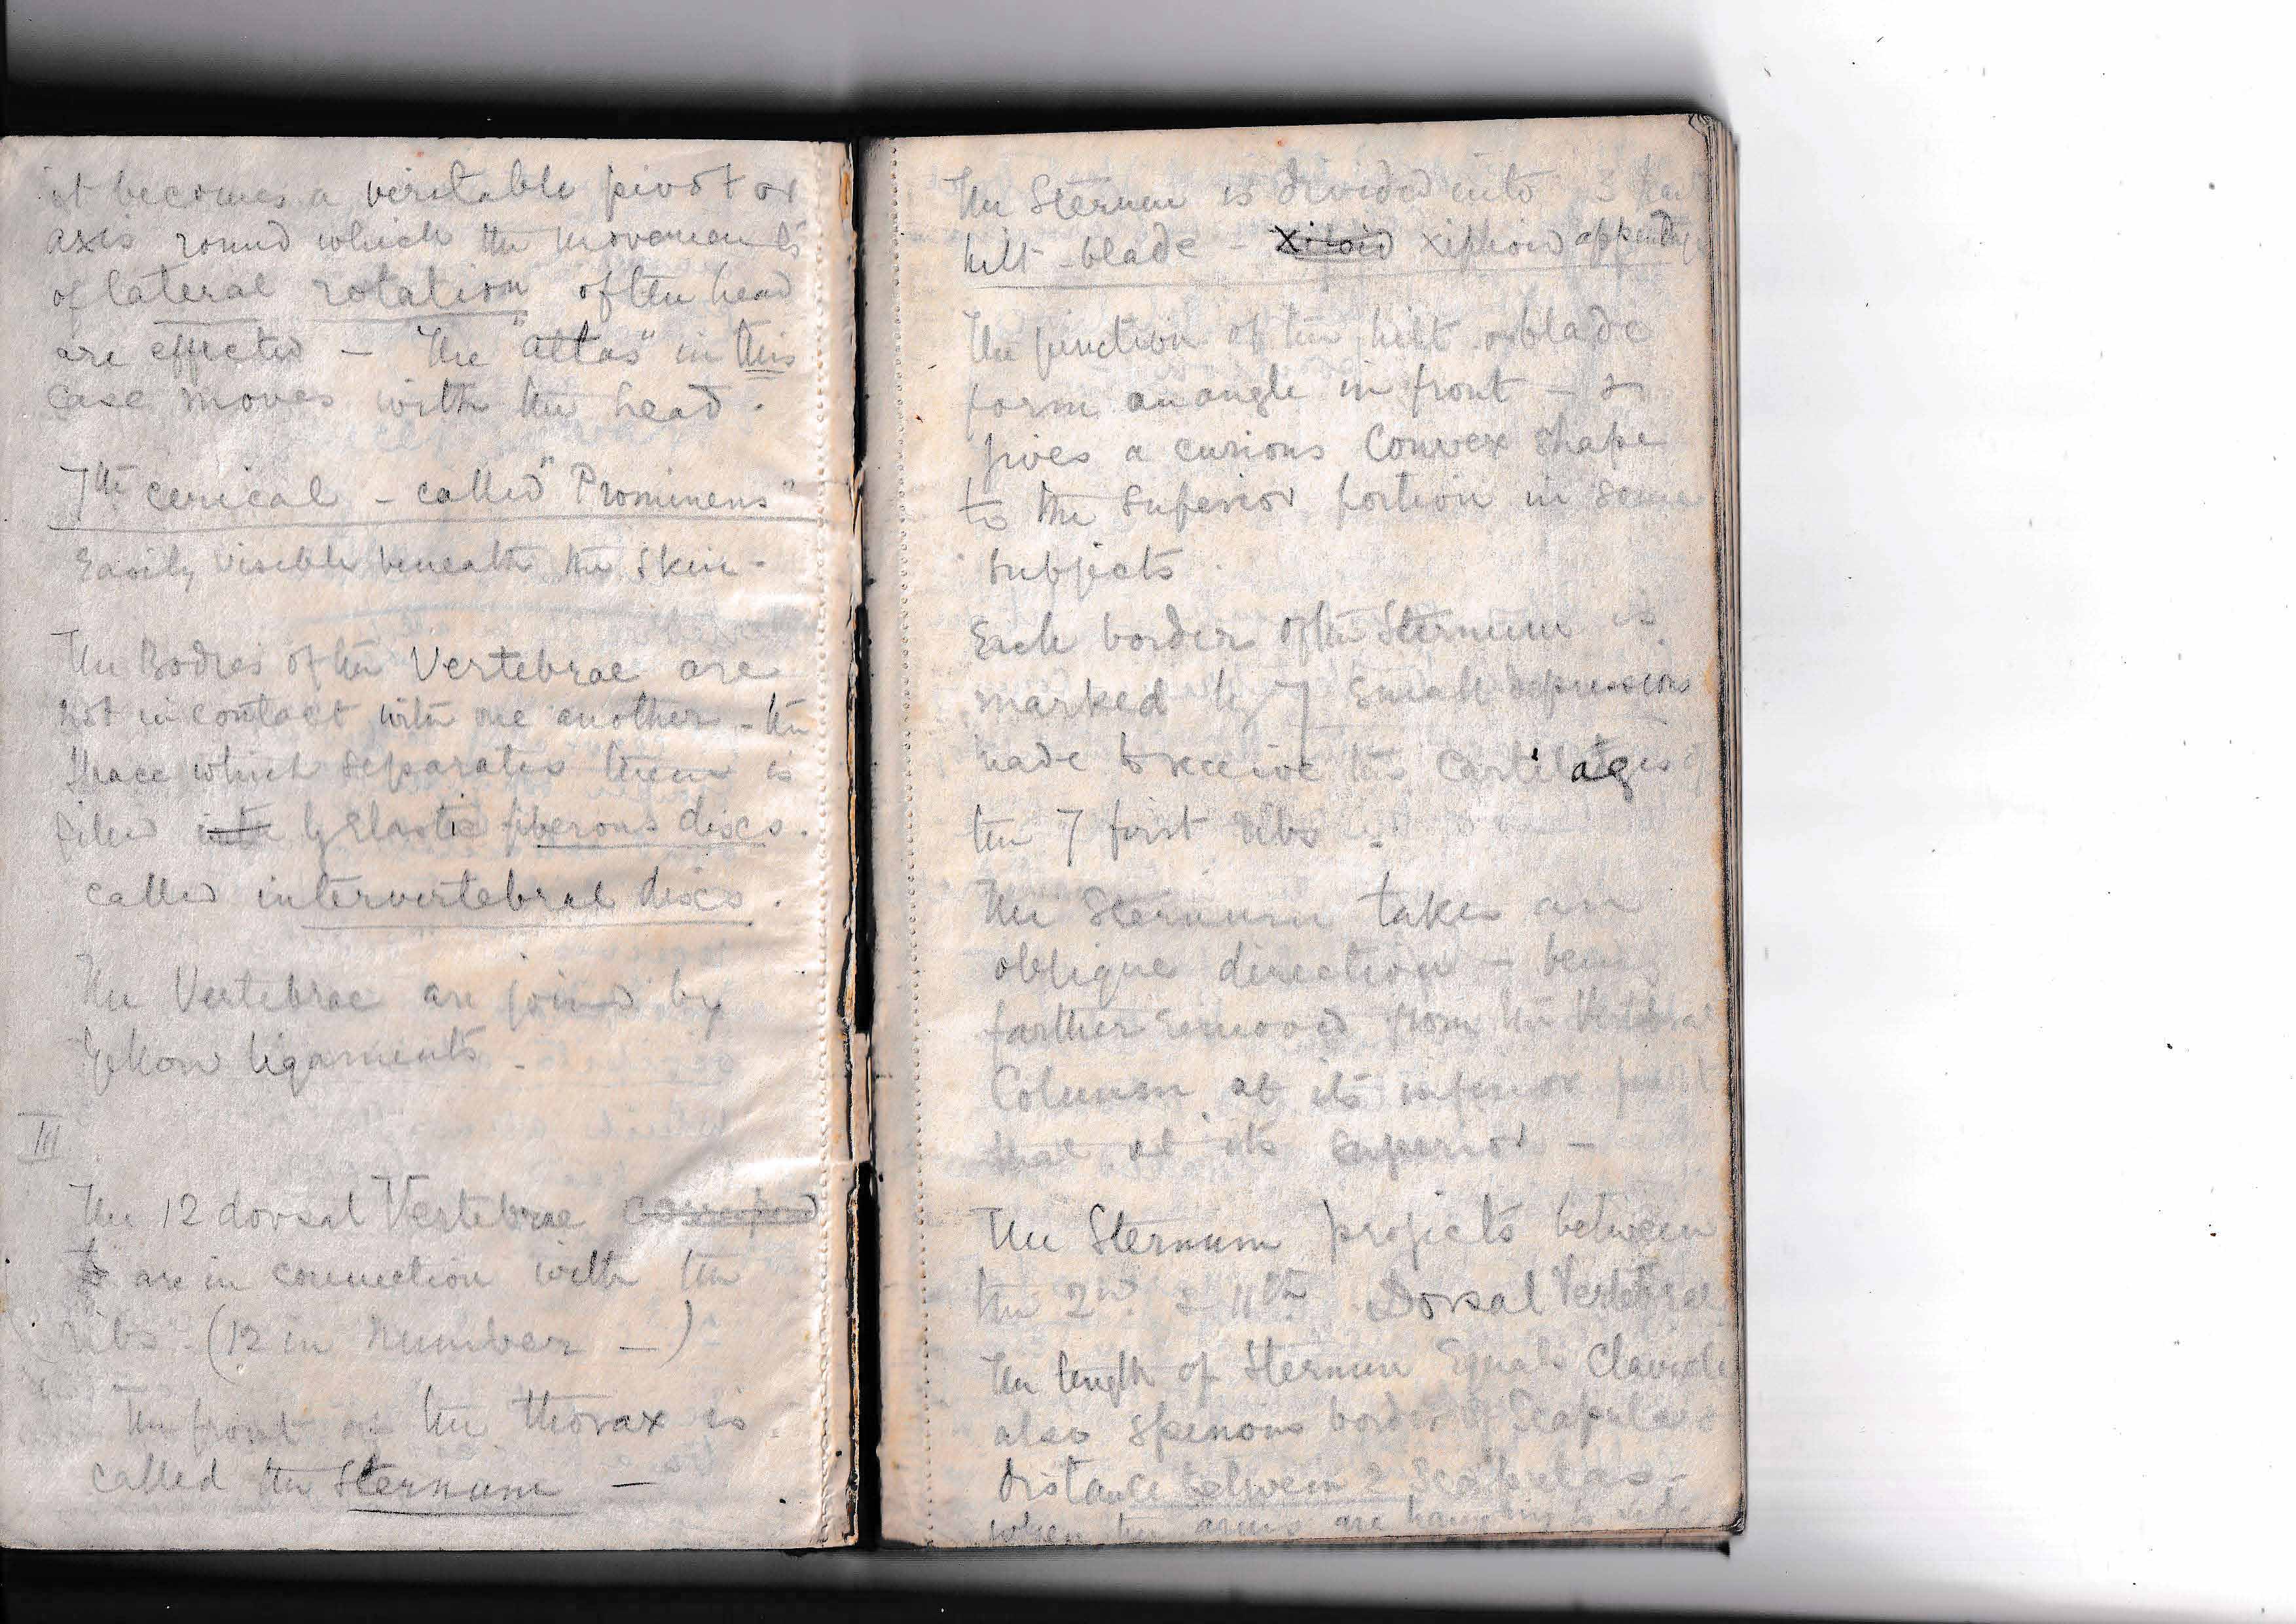 it becomes a veritable pivot or
axis round which the movements
of lateral rotation of the head
are effected – The "atlas" in this
case moves with the head.
7th cerical – called "Prominens"
Easily visible beneath the skin –
The Bodies of the Vertebrae are
not in contact with one another – the
space which separates them is
filled by Elastic fiberous discs.
called intervertebral discs.
The Vertebrae are joined by
Yellow ligaments –
III
The 12 dorsal Vertebrae correspond
to are in connection with the
ribs – (12 in number –)
The front of the thorax is
called the Sternum –
The Sternum is divided into 3
hilt – blade – Xifoid xiphoid appendage
The junction of the hilt & blade
form an angle in front – &
gives a curious Convex shape
to the superior portion in some
subjects.
Each border of the Sternum is
marked by 7 small depressions
made to receive the Cartilages of
the 7 first ribs –
The Sternum takes an
oblique direction – being
farther removed from the Vertebral
Column at its inferior part
than at its superior –
The Sternum projects between
the 2nd & 11th Dorsal Vertebrae
The length of Sternum Equals Clavicle
also Spinous border of Scapula &
distance between 2 Scapulas –
when the arms are hanging to side